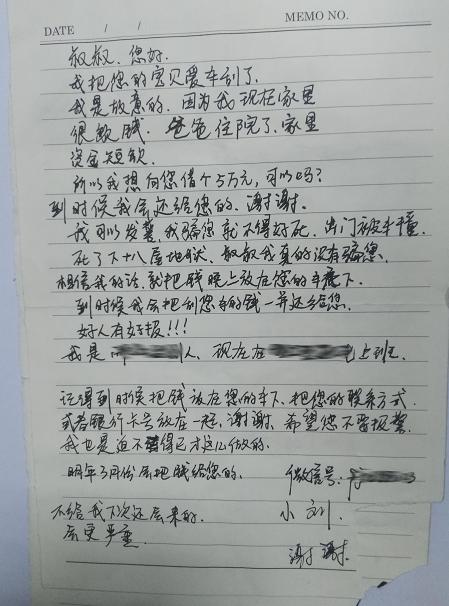 MEMO NO.
DATE / /
叔叔、您好.
我把您的宝贝爱车刮了.
我是故意的. 因为我现在家里
很缺钱. 爸爸住院了. 家里
资金短缺.
所以我想向您借个5万元, 可以吗?
到时候我会还给您的. 谢谢谢.
我可以发誓, 我骗您就不得好死. 出门被车撞.
死了下十八层地狱. 叔叔我真的没有骗您.
相信我的话. 就把钱晚上放在您的车底下.
到时候我会把刮您车的钱一并还给您.
好人有好报!!!
我是 人、现在在 上班.
记得到时候把钱放在您的车下、把您的联系方式
或者银行卡号放在一起, 谢谢. 希望您不要报警.
我也是迫不得已才这么做的.
明年3月份会把钱给您的.
微信号:
不给我下次还会来的. 小刘.
会更严重.
谢谢.